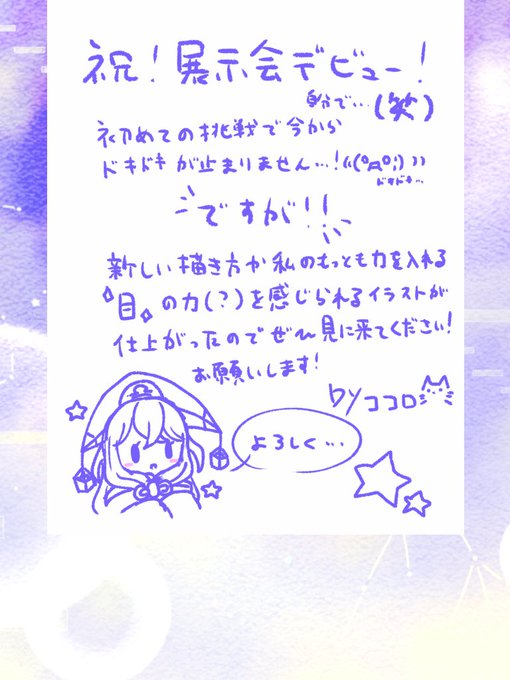 祝!展示会デビュー!
自分で…(笑)
初めての挑戦で今から
ドキドキが止まりません…!(((°д°;)))
ドキドキ…
ですが!!
新しい描き方か私のもっとも力を入れる
"目"の力(?)を感じられるイラストが
仕上がったのでぜひ見に来てください!
お願いします!
byココロ
よろしく…